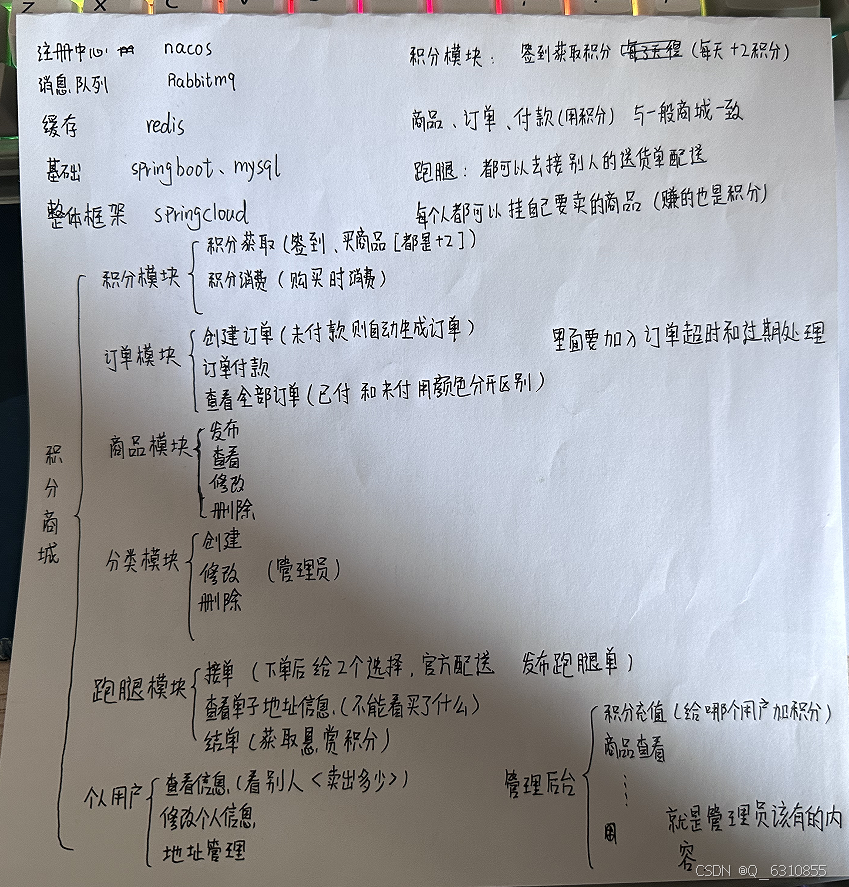 注册中心 nacos
消息队列 Rabbitmq
缓存 redis
基础 springboot、mysql
整体框架 springcloud
积分模块： 签到获取积分 (每天+2积分)
商品、订单、付款(用积分) 与一般商城一致
跑腿：都可以去接别人的送货单配送
每个人都可以挂自己要卖的商品 (赚的也是积分)
积分商城
积分模块
积分获取 (签到、买商品 [都是+2])
积分消费 (购买时消费)
订单模块
创建订单 (未付款则自动生成订单)
订单付款
查看全部订单 (已付和未付用颜色分开区别)
里面要加入订单超时和过期处理
商品模块
发布
查看
修改
删除
分类模块
创建
修改 (管理员)
删除
跑腿模块
接单 (下单后给2个选择，官方配送 发布跑腿单)
查看单子地址信息，(不能看买了什么)
结单 (获取悬赏积分)
个人用户
查看信息，(看别人<卖出多少>)
修改个人信息，
地址管理
管理后台
积分充值 (给哪个用户加积分)
商品查看
⋮
用
就是管理员该有的内
容
CSDN @Q_6310855